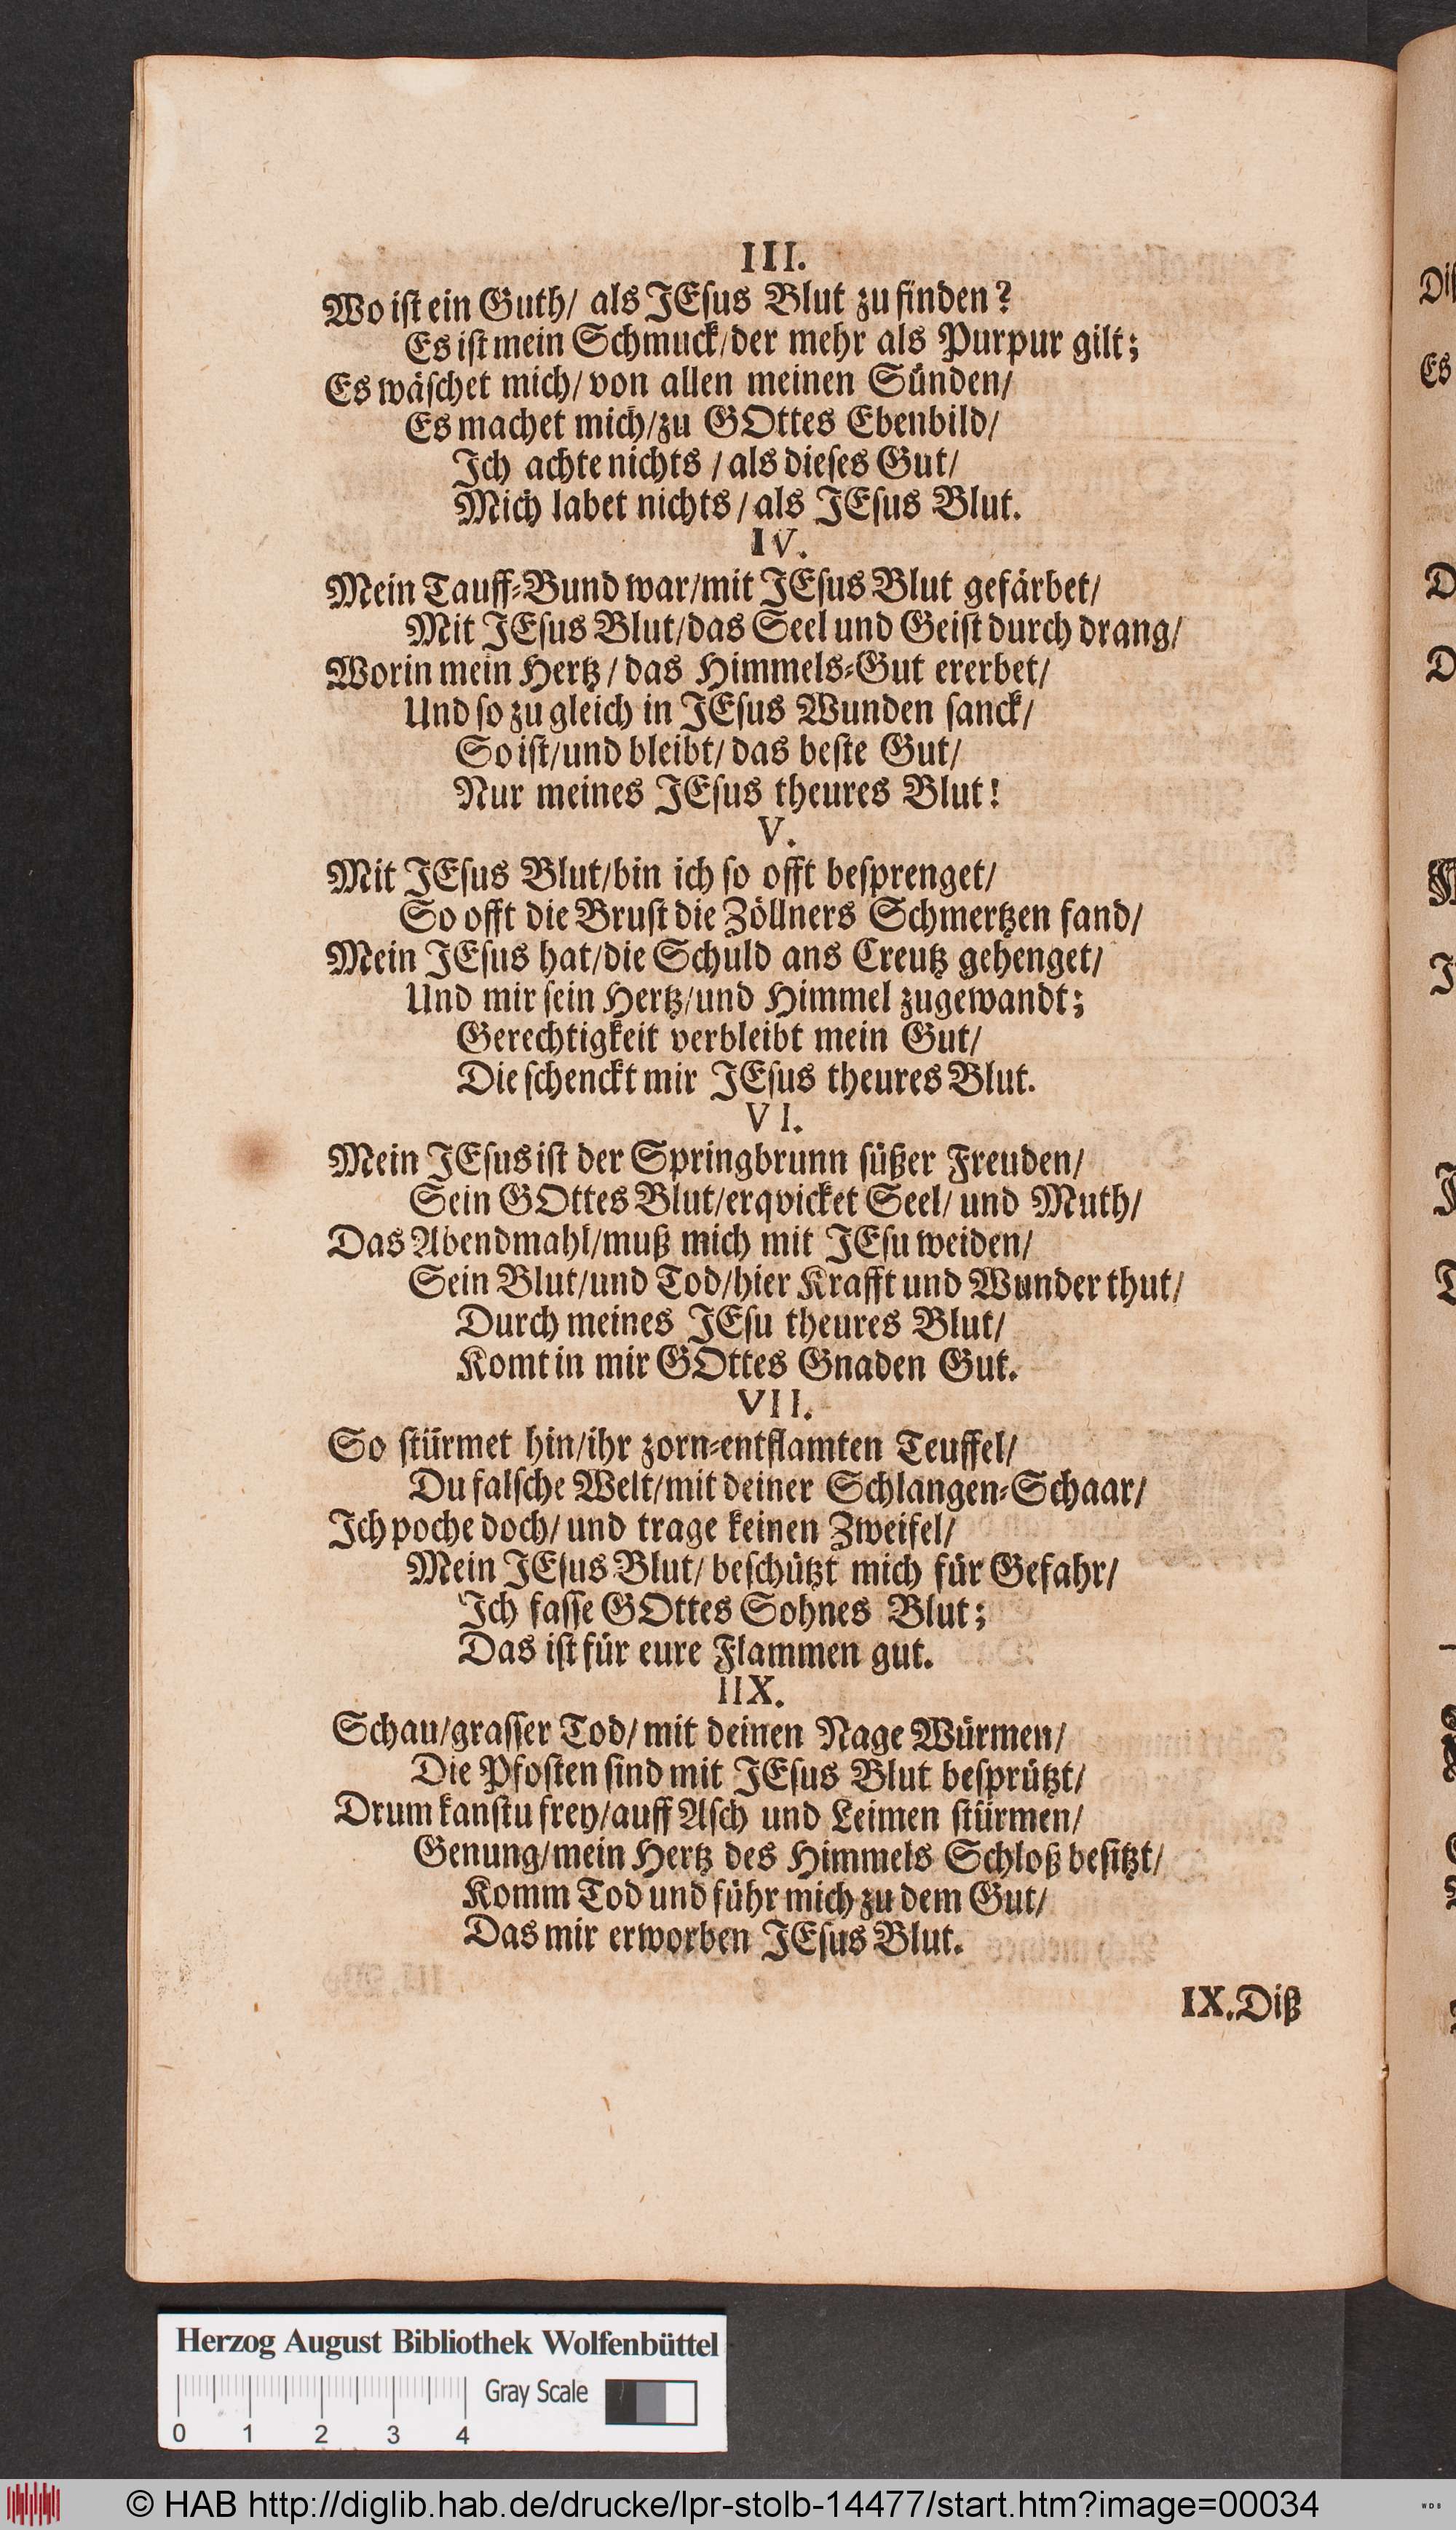 III.
Wo iſt ein Guth/ als JEſus Blut zu finden?
Es iſt mein Schmuck/der mehr als Purpur gilt;
Es wäſchet mich/ von allen meinen Sünden/
Es machet mich/zu GOttes Ebenbild/
Ich achte nichts / als dieſes Gut/
Mich labet nichts / als JEſus Blut.
IV.
Mein Tauff-Bund war/mit JEſus Blut gefärbet/
Mit JEſus Blut/das Seel und Geiſt durch drang/
Worin mein Hertz / das Himmels-Gut ererbet/
Und ſo zu gleich in JEſus Wunden ſanck/
So iſt/und bleibt/ das beſte Gut/
Nur meines JEſus theures Blut!
V.
Mit JEſus Blut/bin ich ſo offt beſprenget/
So offt die Bruſt die Zöllners Schmertzen fand/
Mein JEſus hat/die Schuld ans Creutz gehenget/
Und mir ſein Hertz/und Himmel zugewandt;
Gerechtigkeit verbleibt mein Gut/
Die ſchenckt mir JEſus theures Blut.
VI.
Mein JEſus iſt der Springbrunn ſüßer Freuden/
Sein GOttes Blut/erqvicket Seel/ und Muth/
Das Abendmahl/muß mich mit JEſu weiden/
Sein Blut/und Tod/hier Krafft und Wunder thut/
Durch meines JEſu theures Blut/
Komt in mir GOttes Gnaden Gut.
VII.
So ſtürmet hin/ihr zorn-entflamten Teuffel/
Du falſche Welt/mit deiner Schlangen-Schaar/
Ich poche doch/ und trage keinen Zweifel/
Mein JEſus Blut/ beſchützt mich für Gefahr/
Ich faſſe GOttes Sohnes Blut;
Das iſt für eure Flammen gut.
IIX.
Schau/graſſer Tod/ mit deinen Nage Würmen/
Die Pfoſten ſind mit JEſus Blut beſprützt/
Drum kanſtu frey/auff Aſch und Leimen ſtürmen/
Genung/mein Hertz des Himmels Schloß beſitzt/
Komm Tod und führ mich zu dem Gut/
Das mir erworben JEſus Blut.
IX. Diß
Herzog August Bibliothek Wolfenbüttel
Gray Scale
0 1 2 3 4
© HAB http://diglib.hab.de/drucke/lpr-stolb-14477/start.htm?image=00034